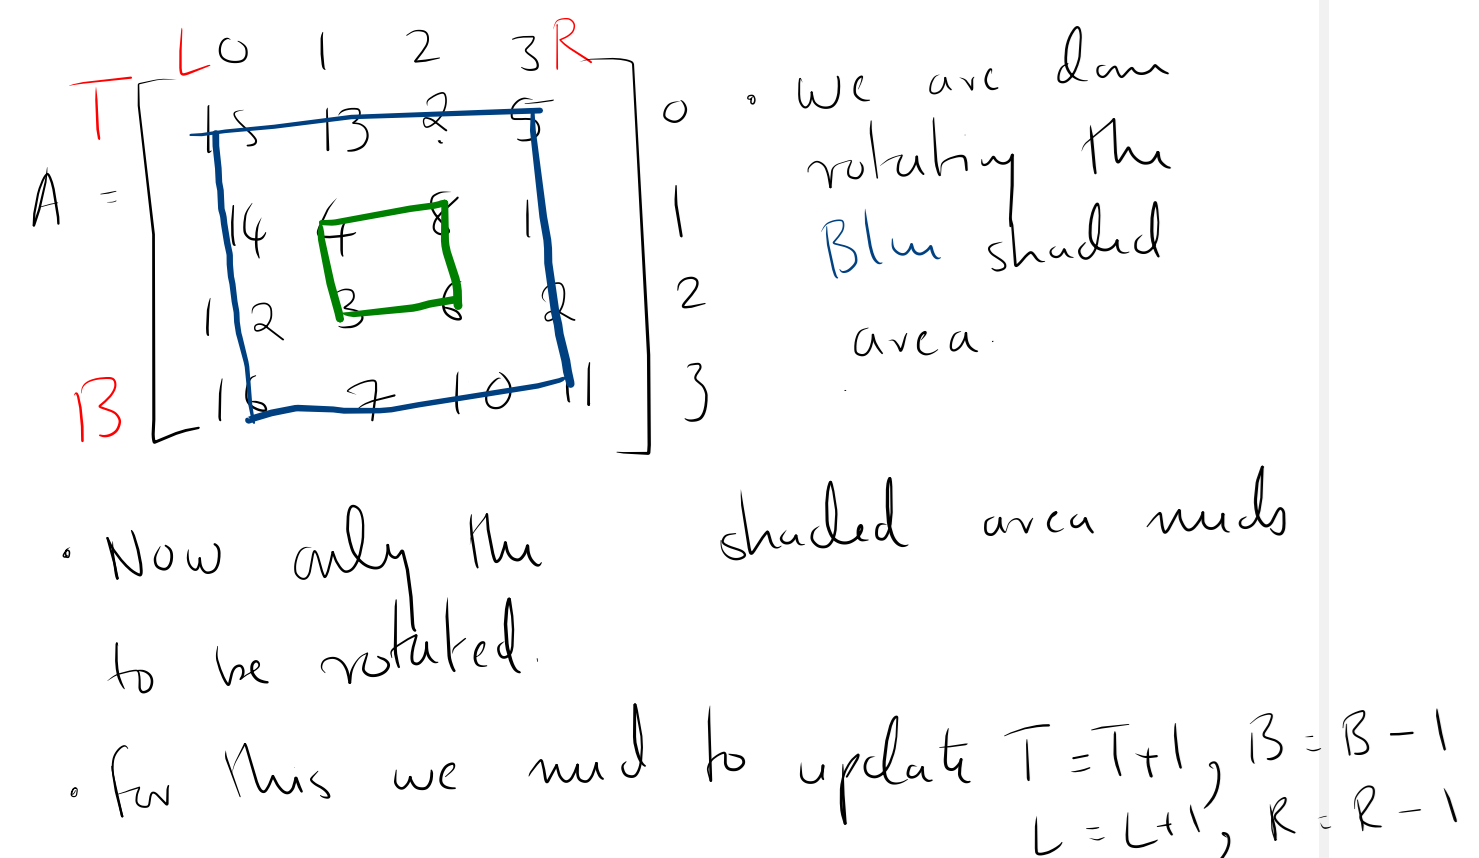 L 0 1 2 3 R
T 15 13 2 5 0
A = 14 4 8 1 1
12 3 6 2 2
B 16 7 10 11 3
• We are done
rotating the
Blue shaded
area.
• Now only the shaded area needs
to be rotated.
• For this we need to update T = T+1, B = B-1
L = L+1, R = R-1